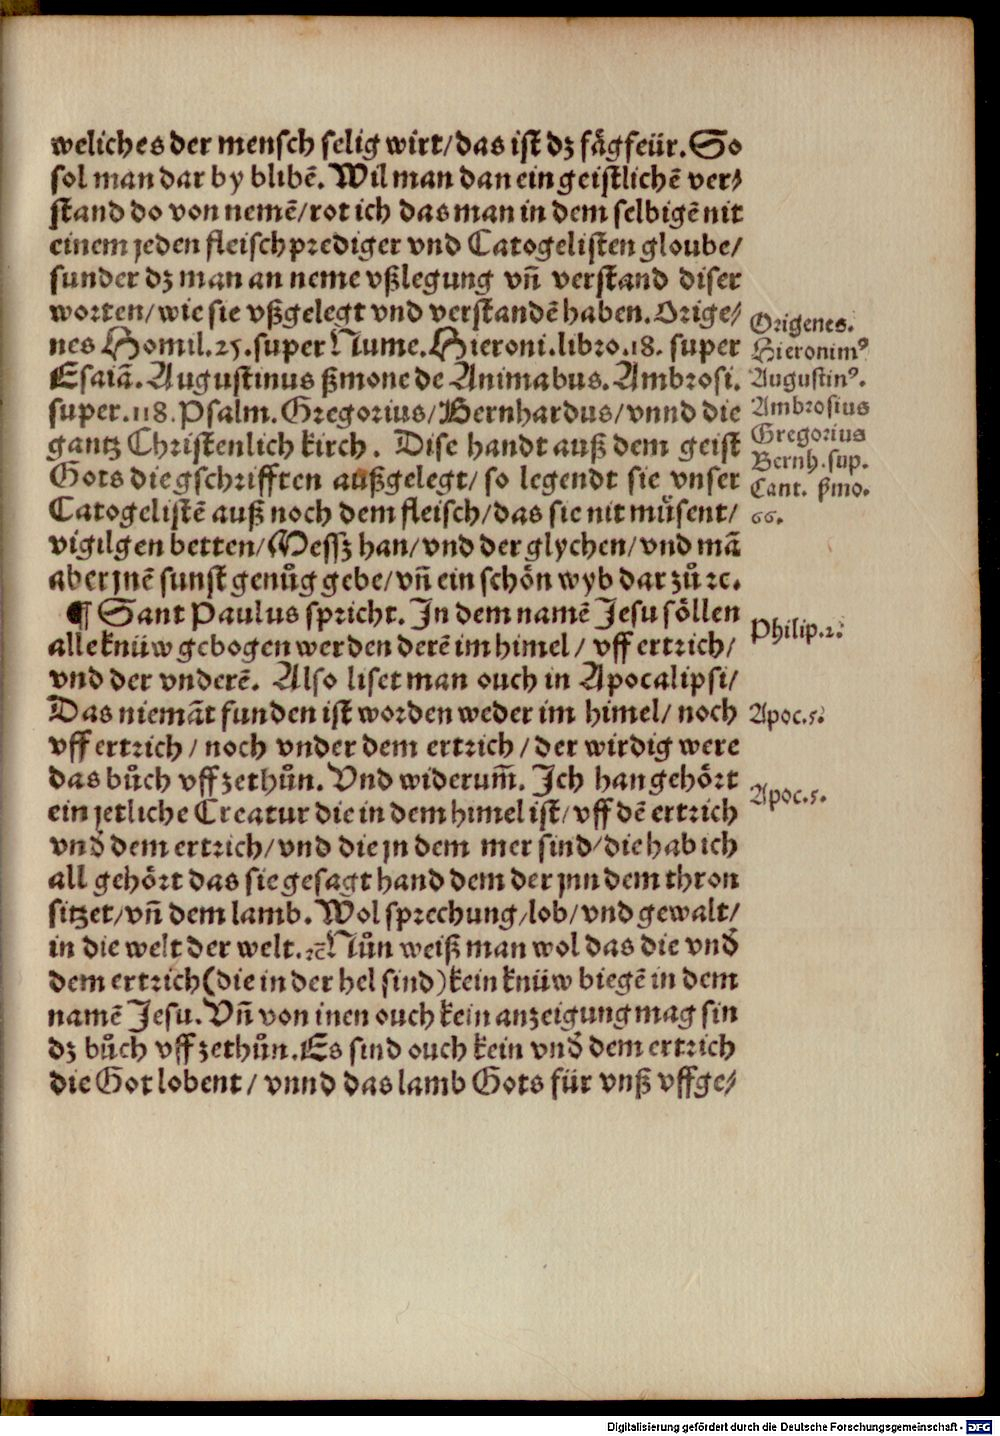 weliches der mensch selig wirt/das ist dz fägfeür. So
sol man dar by blibē. Wil man dan ein geistlichē ver⸗
stand do von nemē/rot ich das man in dem selbigē nit
einem jeden fleisch prediger vnd Catogelisten gloube/
sunder dz man an neme vßlegung vn̄ verstand diser
worten/wie sie vßgelegt vnd verstandē haben. Orige⸗
nes Homil.25.super Nume.Hieroni.libro.18. super
Esaiā. Augustinus ßmone de Animabus. Ambrosi.
super.118.Psalm. Gregorius/Bernhardus/vnnd die
gantz Christenlich kirch. Dise handt auß dem geist
Gots die gschrifften außgelegt/ so legendt sie vnser
Catogelistē auß noch dem fleisch/das sie nit müsent/
vigilgen betten/Messz han/vnd der glychen/vnd mā
aber jnē sunst genůg gebe/vn̄ ein schön wyb dar zů ꝛc.
¶ Sant Paulus spricht. In dem namē Jesu söllen
alle knüw gebogen werden derē im himel/ vff ertrich/
vnd der vnderē. Also liset man ouch in Apocalipsi/
Das niemāt funden ist worden weder im himel/ noch
vff ertrich/ noch vnder dem ertrich/der wirdig were
das bůch vff zethůn. Vnd widerum̄. Ich han gehört
ein jetliche Creatur die in dem himel ist/vff dē ertrich
vnd̓ dem ertrich/vnd die jn dem mer sind/die hab ich
all gehört das sie gesagt hand dem der jnn dem thron
sitzet/vn̄ dem lamb. Wol sprechung/lob/vnd gewalt/
in die welt der welt.ꝛc̄ Nůn weiß man wol das die vnd̓
dem ertrich(die in der hel sind)kein knüw biegē in dem
namē Jesu. Vn̄ von inen ouch kein anzeigung mag sin
dz bůch vff zethůn. Es sind ouch kein vnd̓ dem ertrich
die Got lobent/ vnnd das lamb Gots für vnß vffge⸗
Origenes.
Hieronimꝰ
Augustinꝰ.
Ambrosius
Gregorius
Bernh.sup.
Cant. ßmo.
66.
Philip.2.
Apoc.5.
Apoc.5.
Digitalisierung gefördert durch die Deutsche Forschungsgemeinschaft - DFG